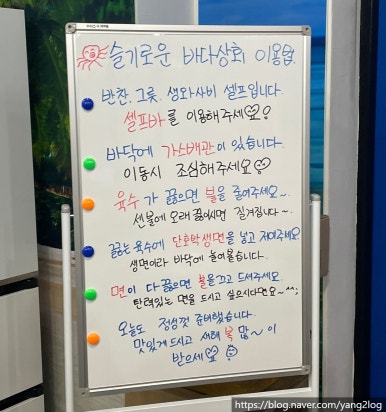 슬기로운 바다상회 이용법.
반찬, 그릇, 생와사비 셀프입니다.
셀프바를 이용해주세요!
바닥에 가스배관이 있습니다.
이동시 조심해주세요!
육수가 끓으면 불을 줄여주세요~.
센불에 오래 끓이시면 짐겨집니다~.
끓는 육수에 단호박생면을 넣고 저어주세요.
생면이라 바닥에 눌어붙습니다.
면이 다 끓으면 불을 끄고 드셔주세요.
탄력있는 면을 드시고 싶으시다면요~^^;
오늘도 정성껏 준비했습니다.
맛있게 드시고 새해 복 많~이
받으세요
https://blog.naver.com/yang2log